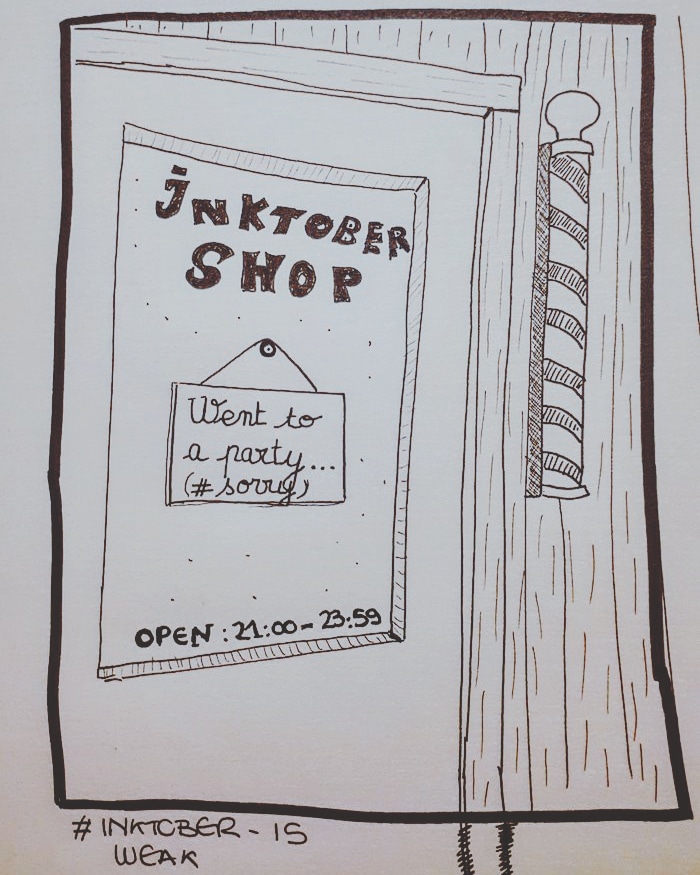 INKTOBER
SHOP
Went to
a party...
(# sorry)
OPEN : 21:00 - 23:59
# INKTOBER - 15
WEAK